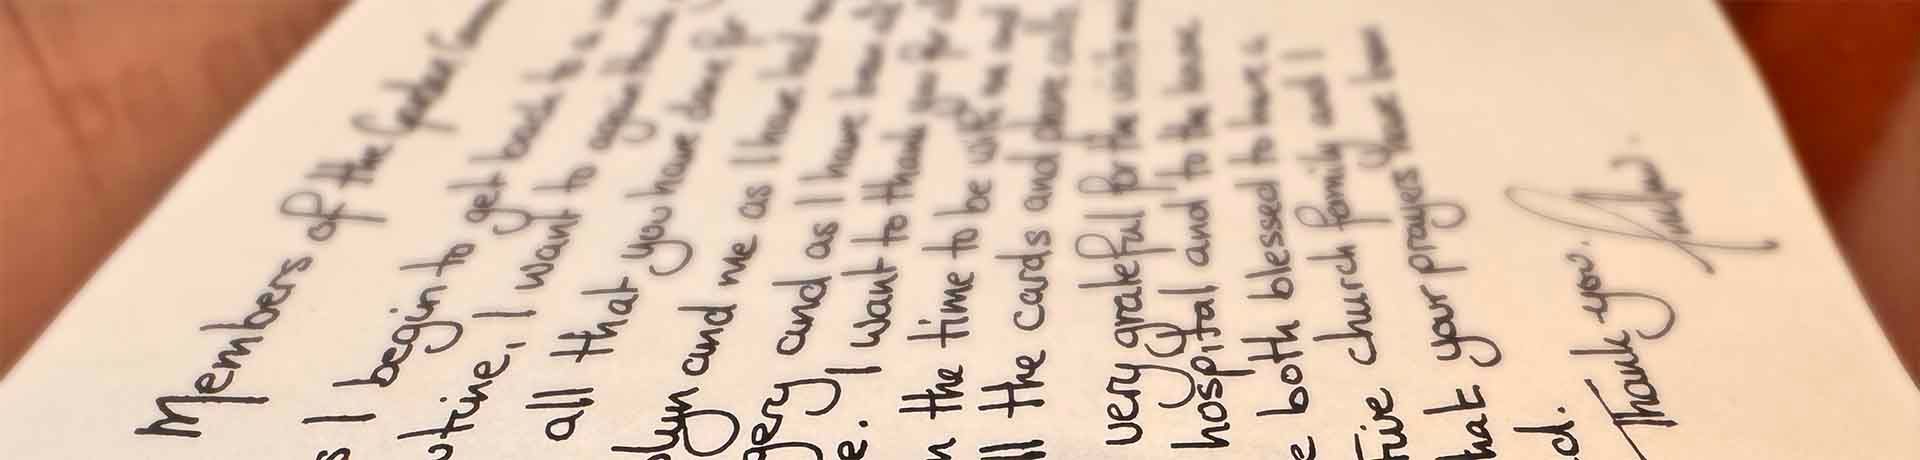 Members of the Garden
I begin to get back to a
utine, I want to again thank
all that you have done for
lyn and me as I have had
gery and as I have been
e. I want to thank you for
n the time to be with me and
ll the cards and phone calls
very grateful for the visits
hospital and to the house
e both blessed to have a
tive church family and I
hat your prayers have been
d.
Thank you.